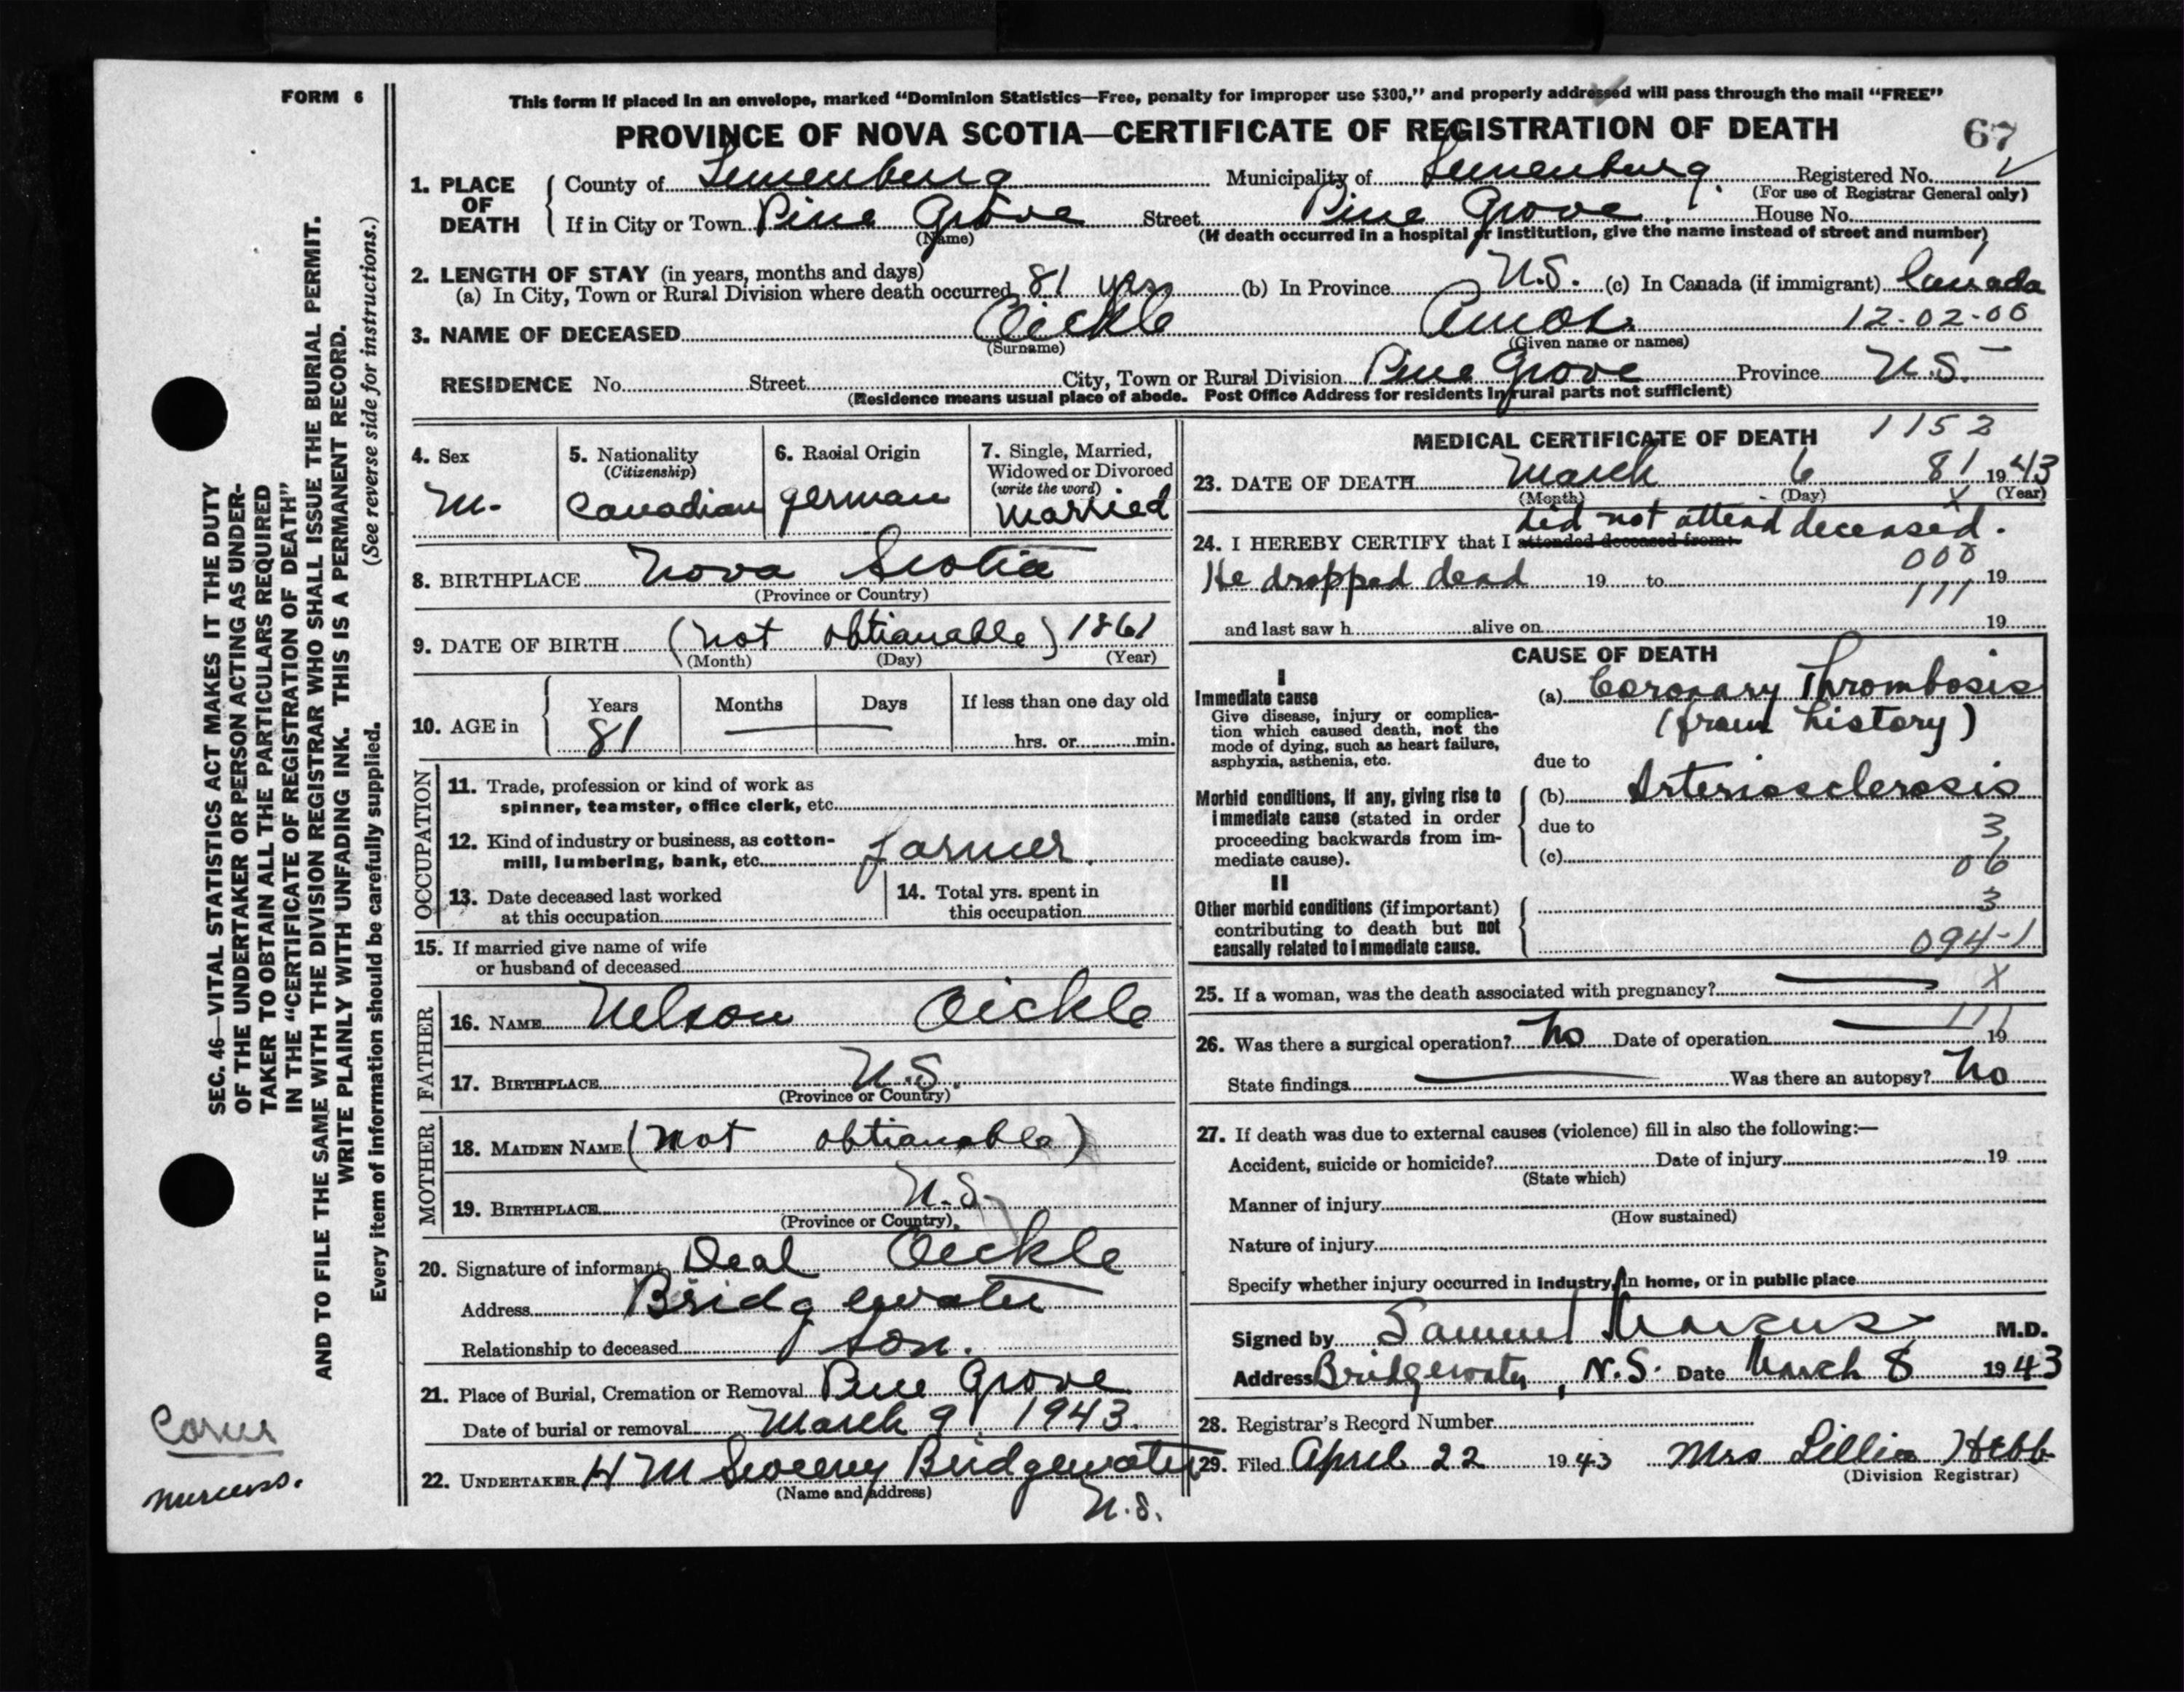 FORM 6
This form if placed in an envelope, marked “Dominion Statistics—Free, penalty for improper use $300,” and properly addressed will pass through the mail “FREE”
PROVINCE OF NOVA SCOTIA—CERTIFICATE OF REGISTRATION OF DEATH 67
1. PLACE OF DEATH
County of Lunenburg Municipality of Lunenburg. Registered No.
(For use of Registrar General only)
If in City or Town Pine Grove Street Pine Grove. House No.
(Name) (If death occurred in a hospital or institution, give the name instead of street and number)
2. LENGTH OF STAY (in years, months and days)
(a) In City, Town or Rural Division where death occurred 81 yrs (b) In Province N.S. (c) In Canada (if immigrant) Canada
3. NAME OF DECEASED Oickle Amos 12-02-06
(Surname) (Given name or names)
RESIDENCE No. Street City, Town or Rural Division Pine Grove Province N.S.
(Residence means usual place of abode. Post Office Address for residents in rural parts not sufficient)
4. Sex
M.
5. Nationality
(Citizenship)
Canadian
6. Racial Origin
german
7. Single, Married,
Widowed or Divorced
(write the word)
Married
8. BIRTHPLACE Nova Scotia
(Province or Country)
9. DATE OF BIRTH (not obtianable) 1861
(Month) (Day) (Year)
10. AGE in Years Months Days If less than one day old
81 — hrs. or min.
OCCUPATION
11. Trade, profession or kind of work as
spinner, teamster, office clerk, etc.
12. Kind of industry or business, as cotton-
mill, lumbering, bank, etc. farmer.
13. Date deceased last worked
at this occupation
14. Total yrs. spent in
this occupation
15. If married give name of wife
or husband of deceased
FATHER
16. NAME Nelson Oickle
17. BIRTHPLACE N.S.
(Province or Country)
MOTHER
18. MAIDEN NAME (not obtianable)
19. BIRTHPLACE N.S.
(Province or Country)
20. Signature of informant Deal Oickle
Address Bridgewater
Relationship to deceased son.
21. Place of Burial, Cremation or Removal Pine Grove
Date of burial or removal March 9, 1943.
22. UNDERTAKER H M Bridgewater
(Name and address) N.S.
MEDICAL CERTIFICATE OF DEATH 1152
23. DATE OF DEATH March 6 81 1943
(Month) (Day) (Year)
did not attend deceased.
24. I HEREBY CERTIFY that I attended deceased from:
He dropped dead 19 to 19
008
111
and last saw h alive on 19
CAUSE OF DEATH
I
Immediate cause
Give disease, injury or complica-
tion which caused death, not the
mode of dying, such as heart failure,
asphyxia, asthenia, etc.
(a) Coronary Thrombosis
(from history)
due to
Morbid conditions, if any, giving rise to
immediate cause (stated in order
proceeding backwards from im-
mediate cause).
(b) Arteriosclerosis
due to 3
(c) 06
II
Other morbid conditions (if important)
contributing to death but not
causally related to immediate cause.
3
094-1
25. If a woman, was the death associated with pregnancy? — X
26. Was there a surgical operation? No Date of operation — 111 19
State findings — Was there an autopsy? No
27. If death was due to external causes (violence) fill in also the following:—
Accident, suicide or homicide? Date of injury 19
(State which)
Manner of injury
(How sustained)
Nature of injury
Specify whether injury occurred in industry, in home, or in public place
Signed by Samuel Marcus M.D.
Address Bridgewater, N.S. Date March 8 1943
28. Registrar’s Record Number
29. Filed April 22 1943 Mrs Lillian Hebb
(Division Registrar)
SEC. 46—VITAL STATISTICS ACT MAKES IT THE DUTY
OF THE UNDERTAKER OR PERSON ACTING AS UNDER-
TAKER TO OBTAIN ALL THE PARTICULARS REQUIRED
IN THE “CERTIFICATE OF REGISTRATION OF DEATH”
AND TO FILE THE SAME WITH THE DIVISION REGISTRAR WHO SHALL ISSUE THE BURIAL PERMIT.
WRITE PLAINLY WITH UNFADING INK. THIS IS A PERMANENT RECORD.
Every item of information should be carefully supplied. (See reverse side for instructions.)